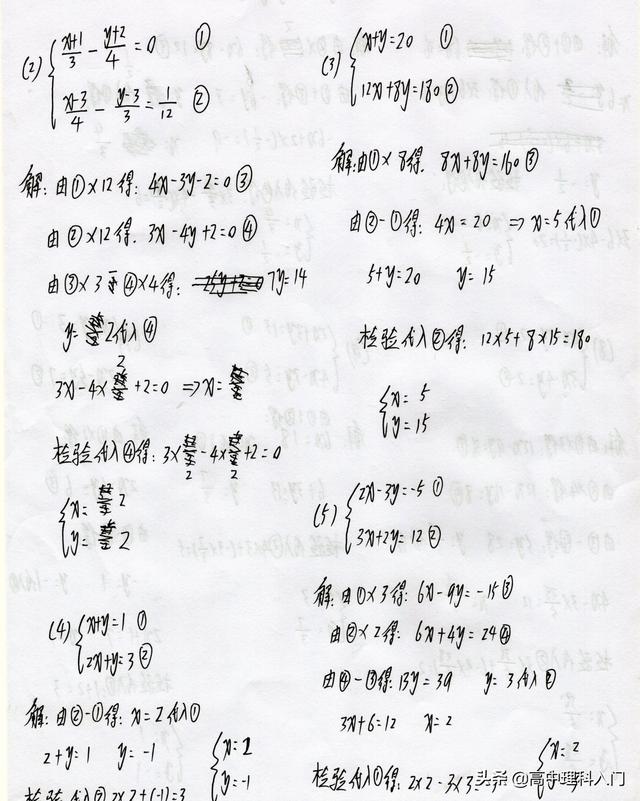 (2) { (x+1)/3 - (y+2)/4 = 0 ①
(x-3)/4 - (y-3)/3 = 1/12 ②
解: 由①×12得: 4x-3y-2=0 ③
由②×12得. 3x-4y+2=0 ④
由③×3 ④×4得: 7y=14
y= 2代入④
3x-4×2+2=0 ⇒x=
检验代入④得: 3×2-4×2+2=0
{ x= 2
y= 2
(4) { x+y=1 ①
2x+y=3 ②
解: 由②-①得: x=2代入①
2+y=1 y=-1
{ x=2
y=-1
检验代入②2×2+(-1)=3
(3) { x+y=20 ①
12x+8y=180 ②
解:由①×8得. 8x+8y=160 ③
由②-①得: 4x=20 ⇒x=5代入①
5+y=20 y=15
检验代入②得: 12×5+8×15=180
{ x= 5
y= 15
(5) { 2x-3y=-5 ①
3x+2y=12 ②
解:由①×3得: 6x-9y=-15 ③
由②×2得: 6x+4y=24 ④
由④-③得:13y=39 y=3代入②
3x+6=12 x=2
{ x=2
检验代入①得: 2×2-3×3
头条 @高中理科入门